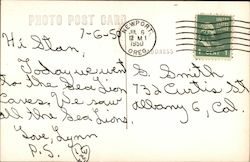 PHOTO POST CARD
7-6-50
Hi Stan,
Today we went
to the Sea Lion
Caves. We saw
all the Sea Lions.
Love, Lynn
P.S.
NEWPORT
JUL 6
12 M
1950
OREG.
ADDRESS
G. Smith
732 Curtis St
Albany 6, Cal.